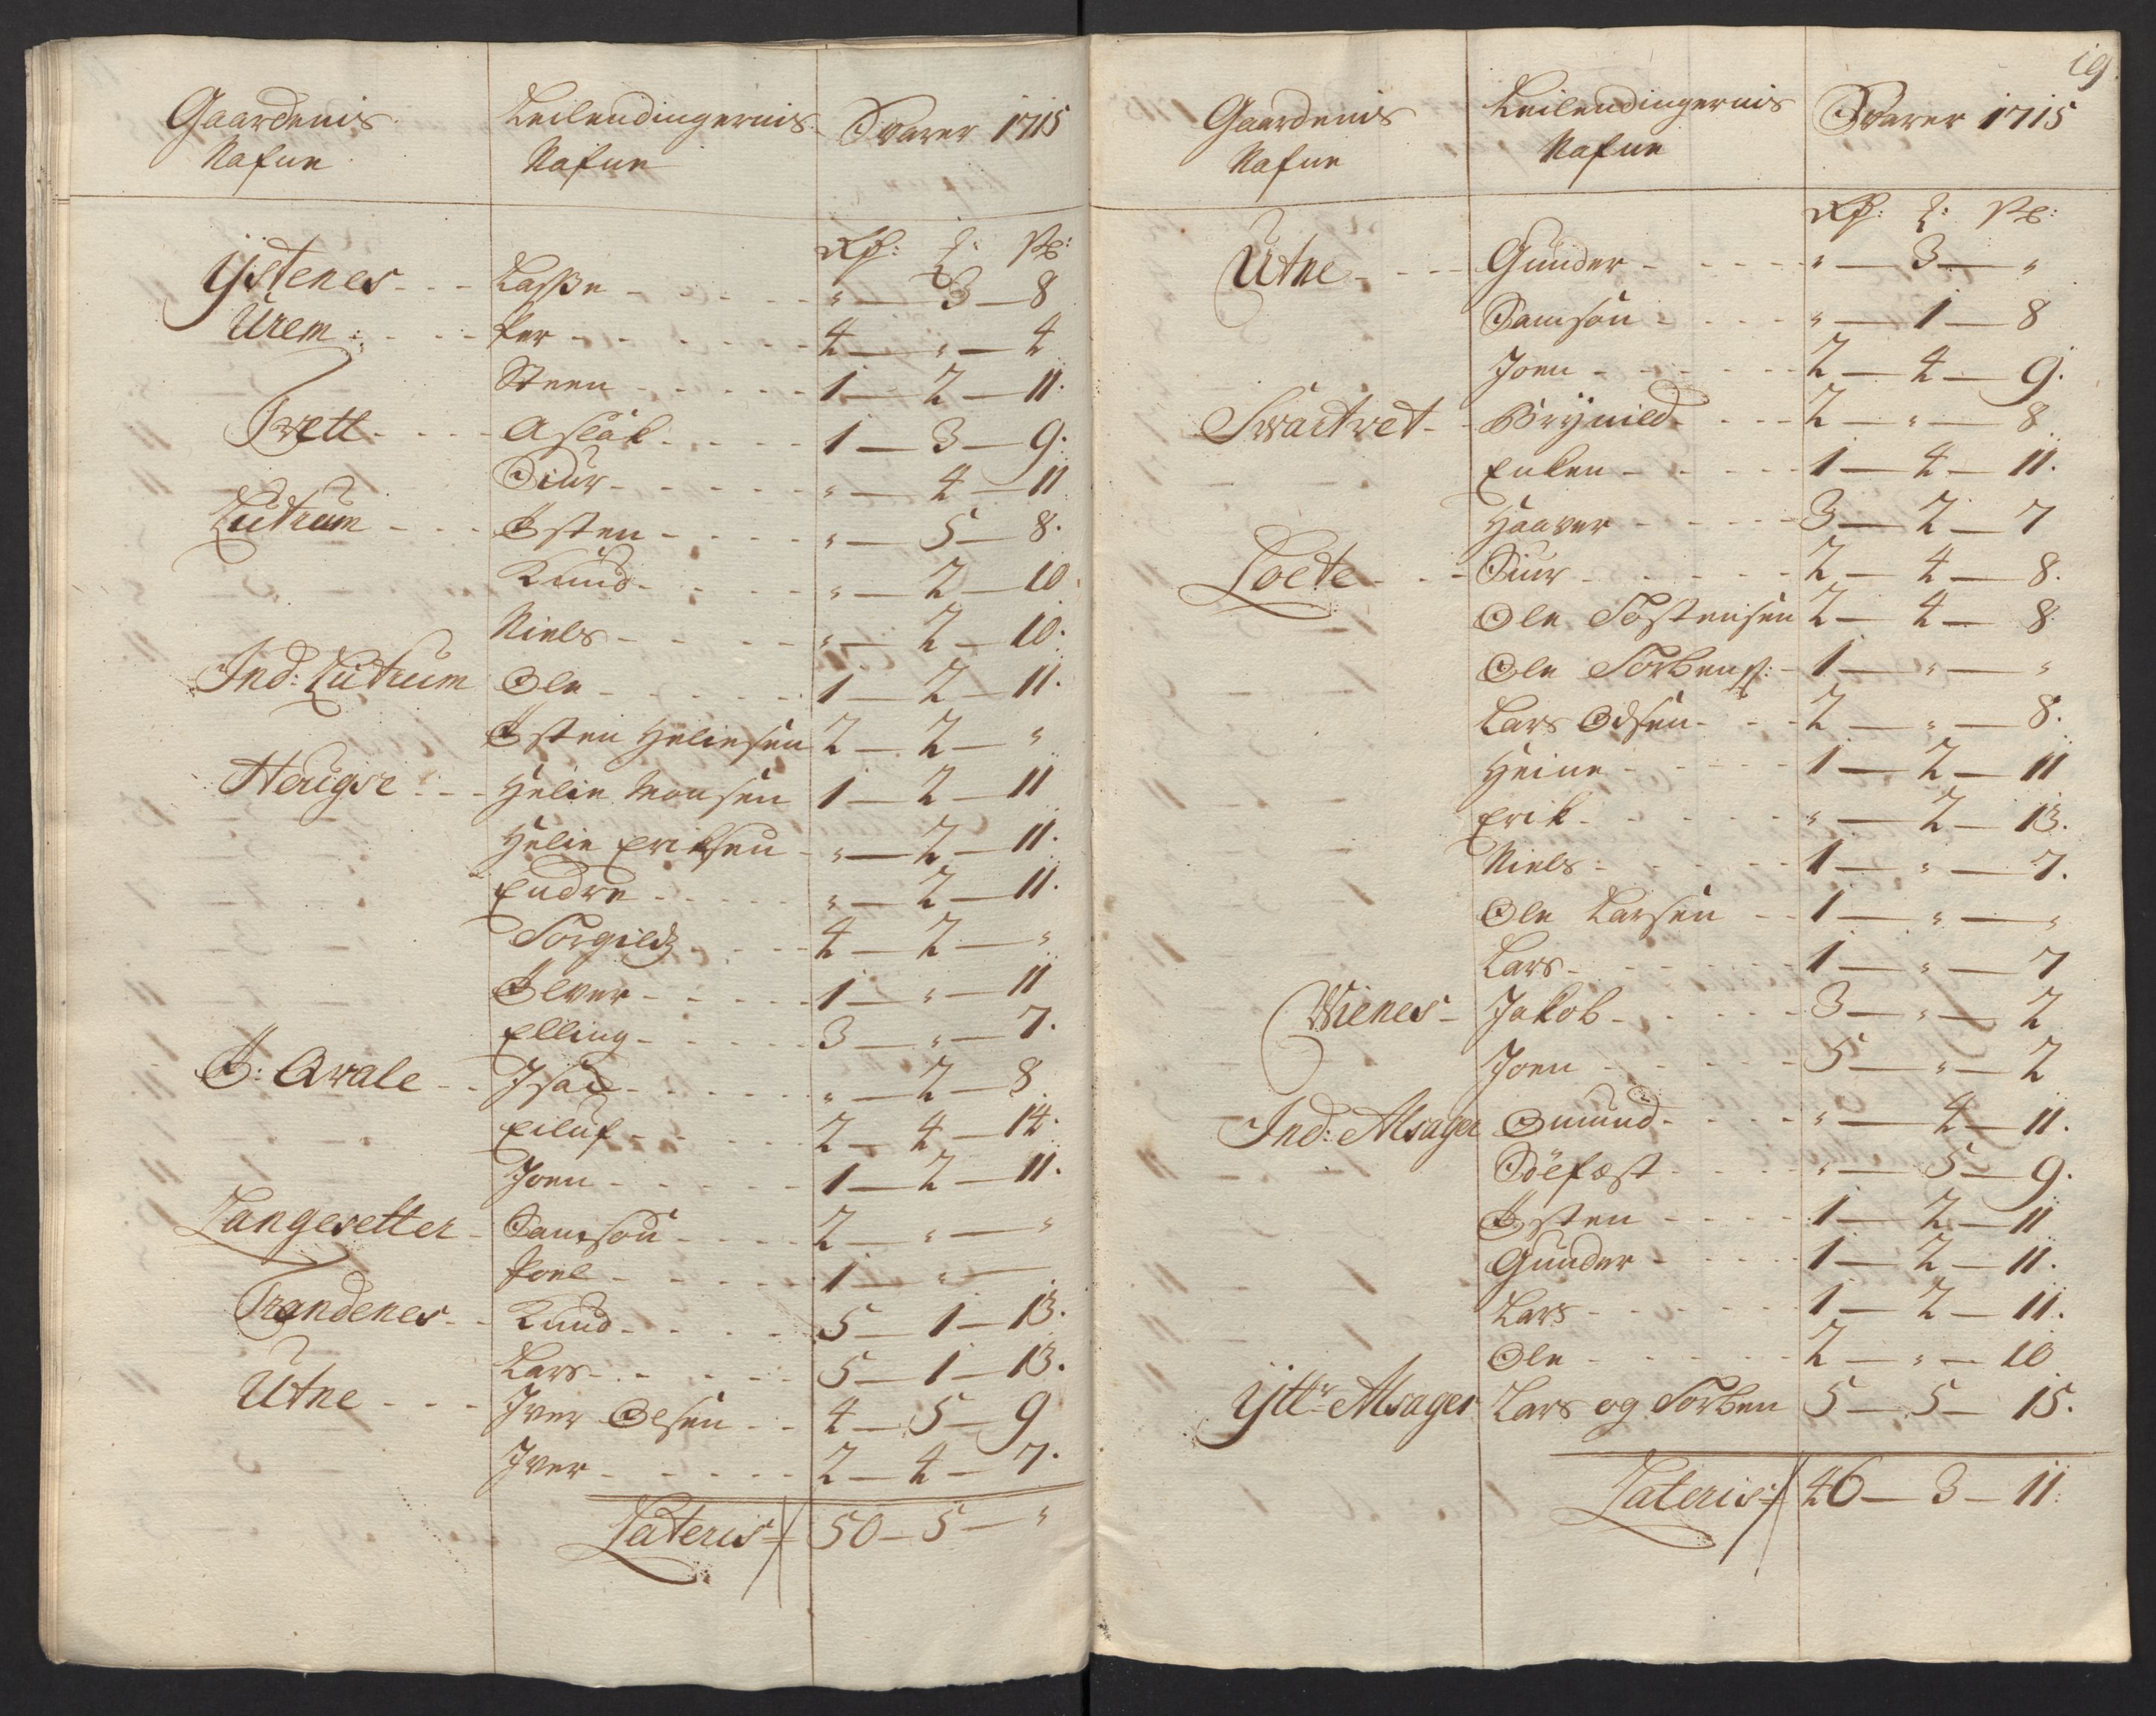 Gaardenis Leilendingernis Svarer 1715
Nafne Nafne
Rd: ƶ: sk:
Ystenes - - - Lasse - - - - - " — 3 — 8
Urem - - - Per - - - - - 4 — " — 4
Steen - - - - - 1 — 2 — 11.
Tvett - - - Aslak - - - - 1 — 3 — 9.
Siur - - - - - " — 4 — 11
Lutrum - - - Østen - - - - " — 5 — 8.
Knud - - - - " — 2 — 10.
Niels - - - - " — 2 — 10.
Ind: Lutrum Ole - - - - - 1 — 2 — 11.
Østen Heliesen 2 — 2 — "
Hougse - - - Helie Monsen 1 — 2 — 11
Helie Eriksen - " — 2 — 11.
Endre - - - - - " — 2 — 11.
Torgield - - - 4 — 2 — "
Ølver - - - - - 1 — " — 11
Elling - - - - - 3 — " — 7.
Ø: Qvale - - Isac - - - - - " — 2 — 8
Eiluf - - - - - 2 — 4 — 14.
Joen - - - - - 1 — 2 — 11.
Langesetter - Samson - - - - 2 — " — "
Poel - - - - - 1 — " —
Trandenes - - Knud - - - - 5 — 1 — 13.
Lars - - - - - 5 — 1 — 13.
Utne - - - Iver Olsen - - 4 — 5 — 9
Iver - - - - - 2 — 4 — 7.
Lateris 50 — 5 — "
19.
Gaardenis Leilendingernis Svarer 1715
Nafne Nafne
Rd: ƶ: sk:
Utne - - - Gunder - - - - - " — 3 — "
Samson - - - - " — 1 — 8
Joen - - - - - 2 — 4 — 9.
Svartvet - - Brynild - - - 2 — " — 8
Enken - - - - 1 — 4 — 11.
Haaver - - - - 3 — 2 — 7
Loete - - - Siur - - - - - 2 — 4 — 8.
Ole Tostensen 2 — 4 — 8
Ole Torbens: - 1 — " — "
Lars Odsen - - - 2 — " — 8.
Heine - - - - - 1 — 2 — 11
Erik - - - - - " — 2 — 13.
Niels - - - - - 1 — " — 7.
Ole Larsen - - 1 — " — "
Lars - - - - - 1 — " — 7
Wienes - Jakob - - - - - 3 — " — 2
Joen - - - - - 5 — " — 2
Ind: Alsager Omund - - - - " — 4 — 11.
Söefast - - - - " — 5 — 9.
Østen - - - - 1 — 2 — 11
Gunder - - - - 1 — 2 — 11.
Lars - - - - - 1 — 2 — 11.
Ole - - - - - 2 — " — 10
Yttr Alsager Lars og Torben 5 — 5 — 15.
Lateris 46 — 3 — 11: